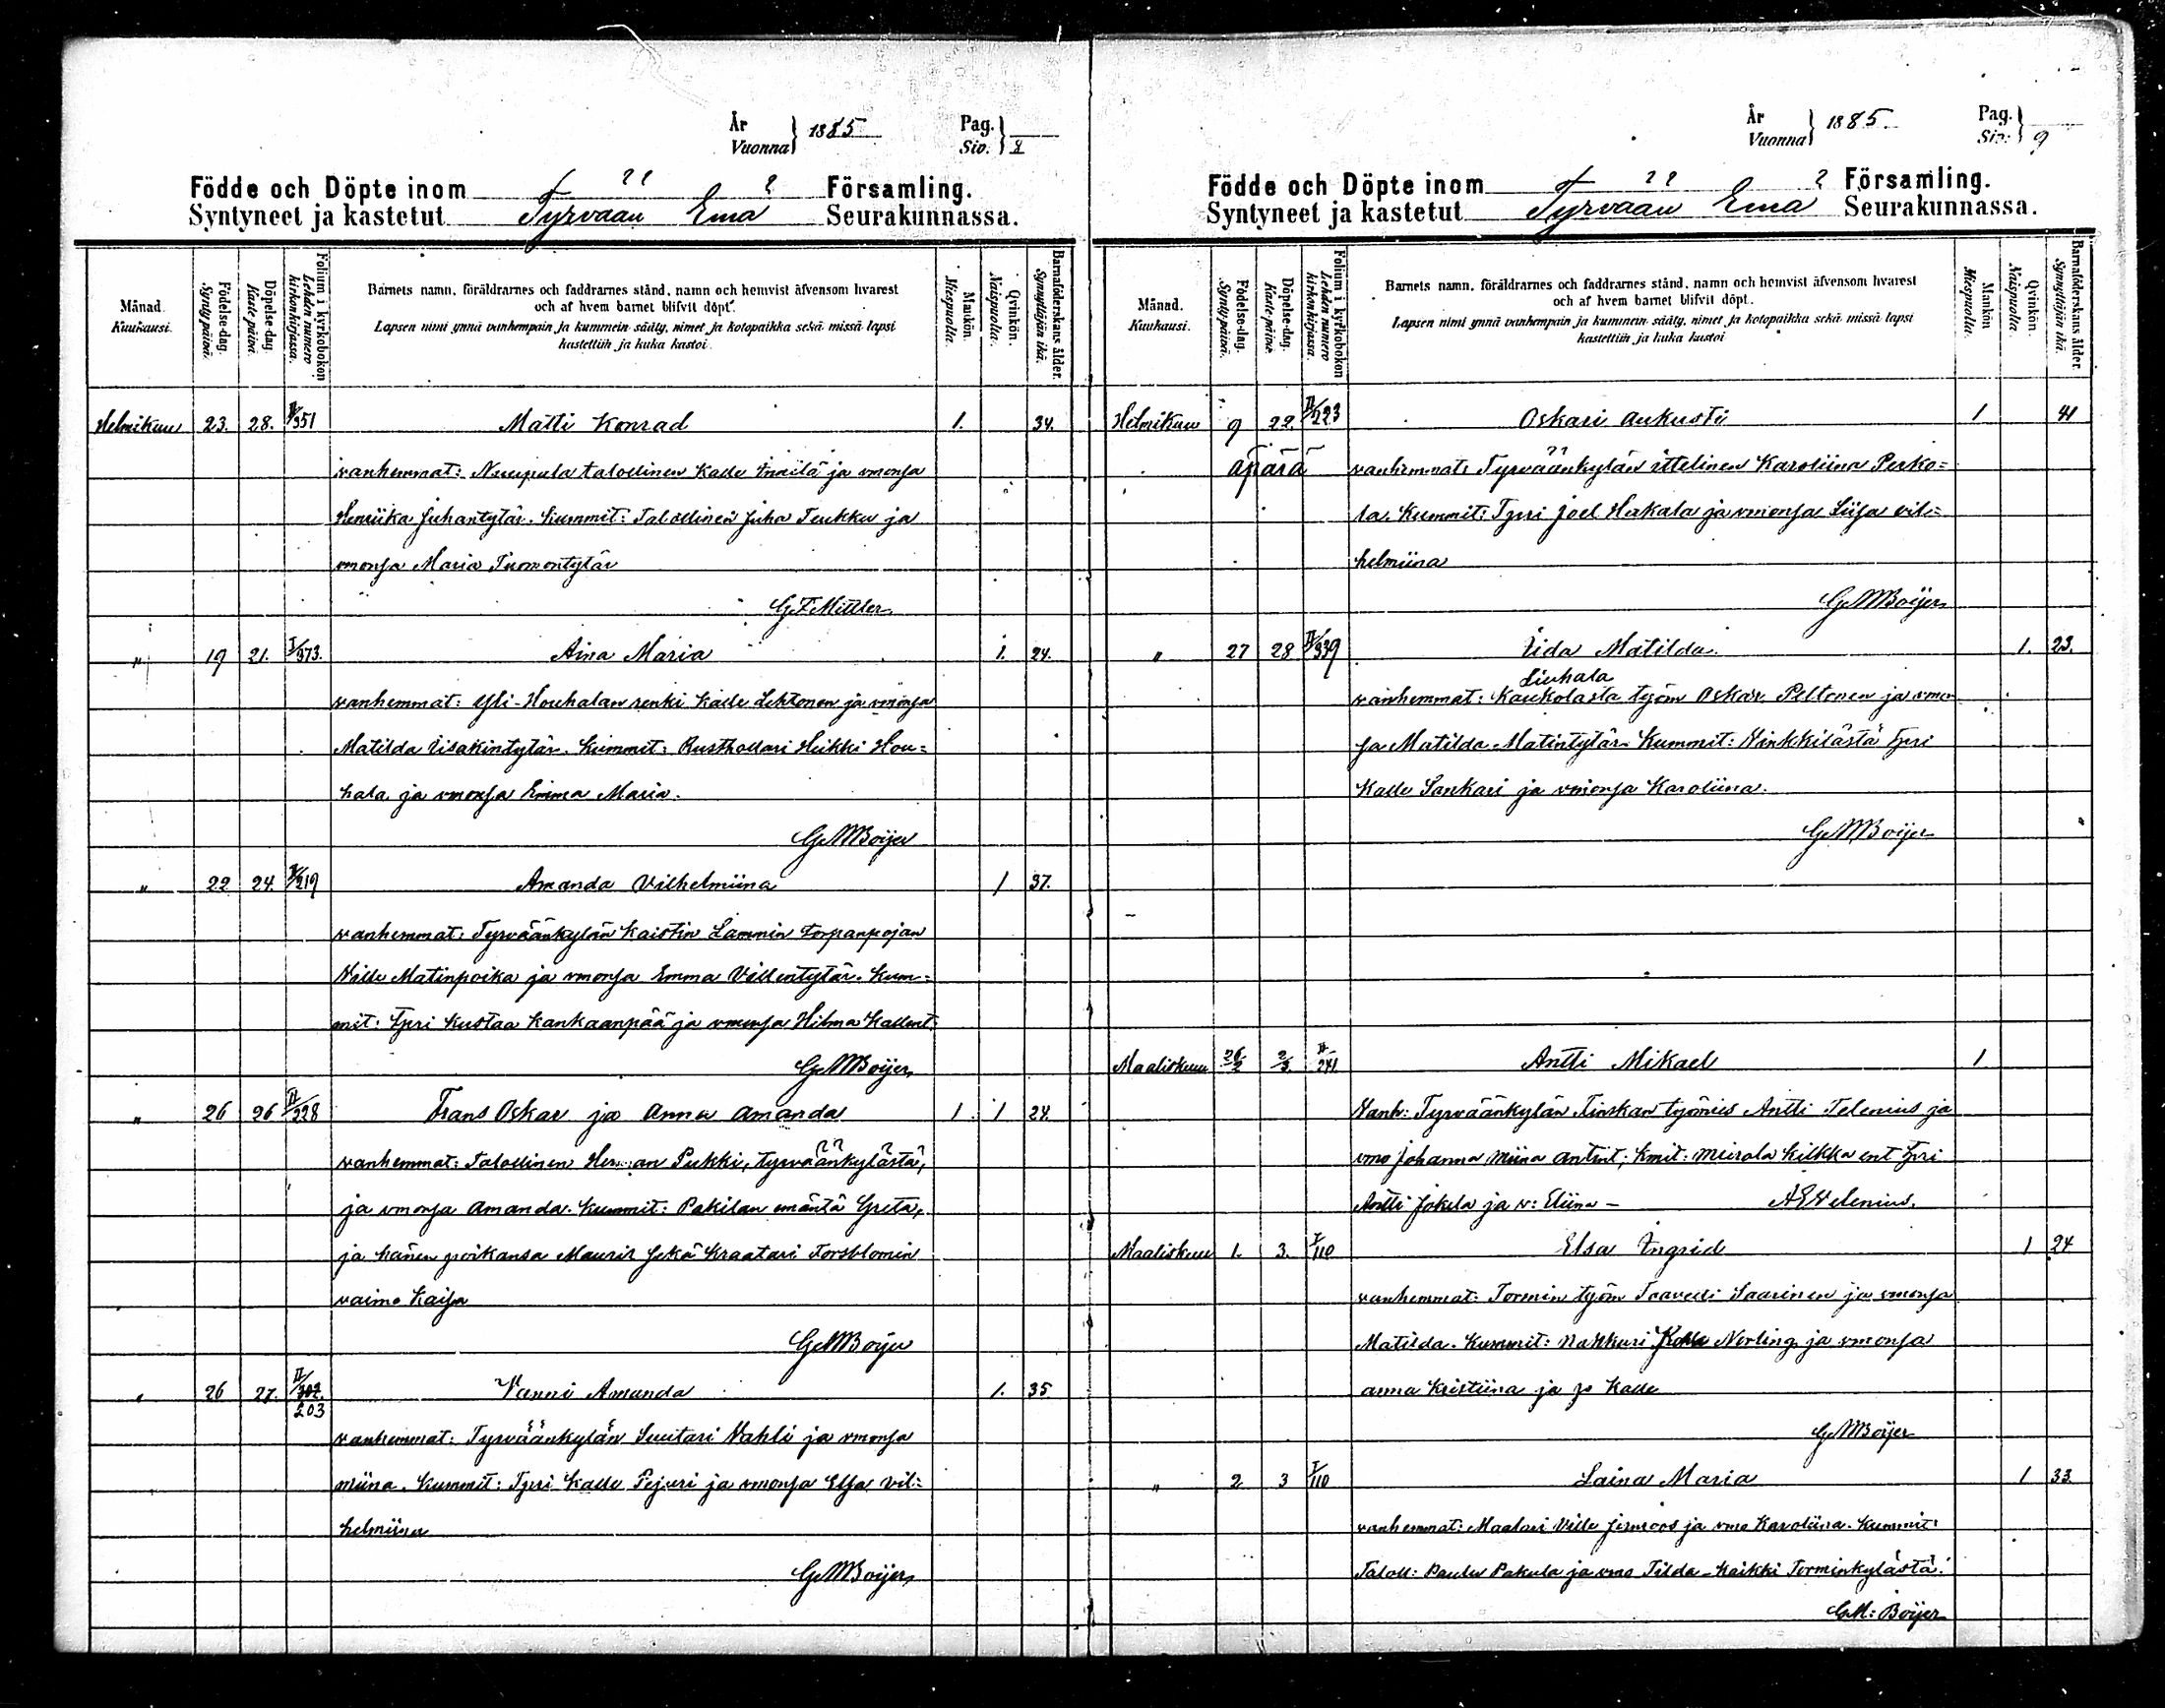 År
Vuonna } 1885
Pag.
Siv. } 8
Födde och Döpte inom Församling.
Syntyneet ja kastetut Tyrvään Emä Seurakunnassa.
Månad. Kuukausi.
Födelse-dag. Syntypäivä.
Döpelse-dag. Kaste päivä.
Folium i kyrkoboken Lehden numero kirkonkirjassa.
Barnets namn, föräldrarnes och faddrarnes stånd, namn och hemvist äfvensom hvarest
och af hvem barnet blifvit döpt.
Lapsen nimi ynnä vanhempain ja kummein sääty, nimet ja kotopaikka sekä missä lapsi
kastettiin ja kuka kastoi.
Mankön. Miespuolta.
Qvinkön. Naispuolta.
Barnaföderskans ålder. Synnyttäjän ikä.
Helmikuu 23. 28. II/351 Matti Konrad 1. 34.
vanhemmat: Nuupala talollinen Kalle ja vmonsa
Henriika Juhantytär. Kummit: Talollinen Juha Teukku ja
vmonsa Maria Tuomontytär
G.F. Mittler.
" 19 21. I/373. Aina Maria 1. 24.
vanhemmat: Yli-Houhalan renki Kalle Lehtonen ja vmonsa
Matilda Iisakintytär. Kummit: Rusthollari Heikki Hou=
hala ja vmonsa Emma Maria.
GMBoijer
" 22 24 II/219 Amanda Vilhelmiina 1 37.
vanhemmat: Tyrväänkylän Kaistin Lammin torpanpojan
Ville Matinpoika ja vmonsa Emma Villentytär. Kum=
mit: Tpri Kustaa Kankaanpää ja vmonsa Hilma Kallent.
GMBoijer
" 26 26 II/228 Frans Oskar ja Anna Amanda 1 1 24.
vanhemmat: Talollinen Herman Pukki, Tyrväänkylästä,
ja vmonsa Amanda. Kummit: Pakilan emäntä Greta,
ja hänen poikansa Mauriz sekä Kraatari Forsblomin
vaimo Kaisa
GMBoijer
" 26 27. II/302. 203 Vanni Amanda 1. 35
vanhemmat: Tyrväänkylän Suutari Vahli ja vmonsa
Miina. Kummit: Tpri Kalle Pejuri ja vmonsa Elsa Vil=
helmiina
GMBoijer
År
Vuonna } 1885.
Pag.
Siv: } 9
Födde och Döpte inom Församling.
Syntyneet ja kastetut Tyrvään Emä Seurakunnassa.
Månad. Kuukausi.
Födelse-dag. Syntypäivä.
Döpelse-dag. Kaste päivä.
Folium i kyrkoboken Lehden numero kirkonkirjassa.
Barnets namn, föräldrarnes och faddrarnes stånd, namn och hemvist äfvensom hvarest
och af hvem barnet blifvit döpt.
Lapsen nimi ynnä vanhempain ja kummein sääty, nimet ja kotopaikka sekä missä lapsi
kastettiin ja kuka kastoi
Mankön Miespuolta.
Qvinkön. Naispuolta.
Barnaföderskans ålder. Synnyttäjän ikä.
Helmikuu 9 22 II/223 Oskari Aukusti 1 41
äpärä vanhemmat: Tyrväänkylän ittelinen Karoliina Perko=
la. Kummit: Tpri Joel Hakala ja vmonsa Liisa Vil=
helmiina
GMBoijer
" 27 28 II/339 Iida Matilda. 1. 23.
Liuhala
vanhemmat: Kaukolasta työm Oskar Peltonen ja vmon
sa Matilda Matintytär. Kummit: Vinkkilästä Tpri
Kalle Sankari ja vmonsa Karoliina.
GMBoijer
Maaliskuu 26/2 2/3. II/241 Antti Mikael 1
Vanh: Tyrväänkylän Tinskan työmies Antti Telenius ja
vmo Johanna Miina Antint; Kmit: Meirola Kilkka ent Tpri
Antti Jokela ja v: Eliina - AEHelenius.
Maaliskuu 1. 3. I/110 Elsa Ingrid 1 24
vanhemmat: Tormin työm Taavetti Saarinen ja vmonsa
Matilda. Kummit: Nahkuri Kalle Norling ja vmonsa
Anna Kristiina ja po Kalle
GMBoijer
" 2 3 I/110 Laina Maria 1 33.
vanhemmat: Maalari Ville Jernroos ja vmo Karoliina. Kummit:
Taloll: Paulu Pakula ja vmo Tilda - Kaikki Torminkylästä.
GM: Boijer